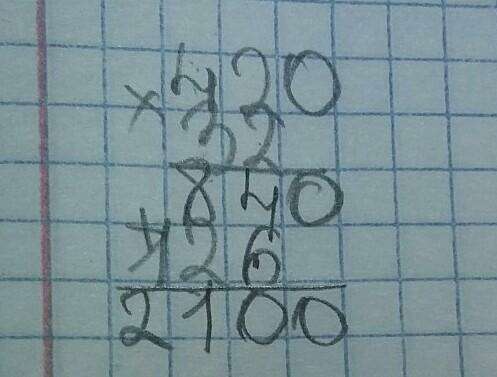 × 420
32
840
+ 126
2100